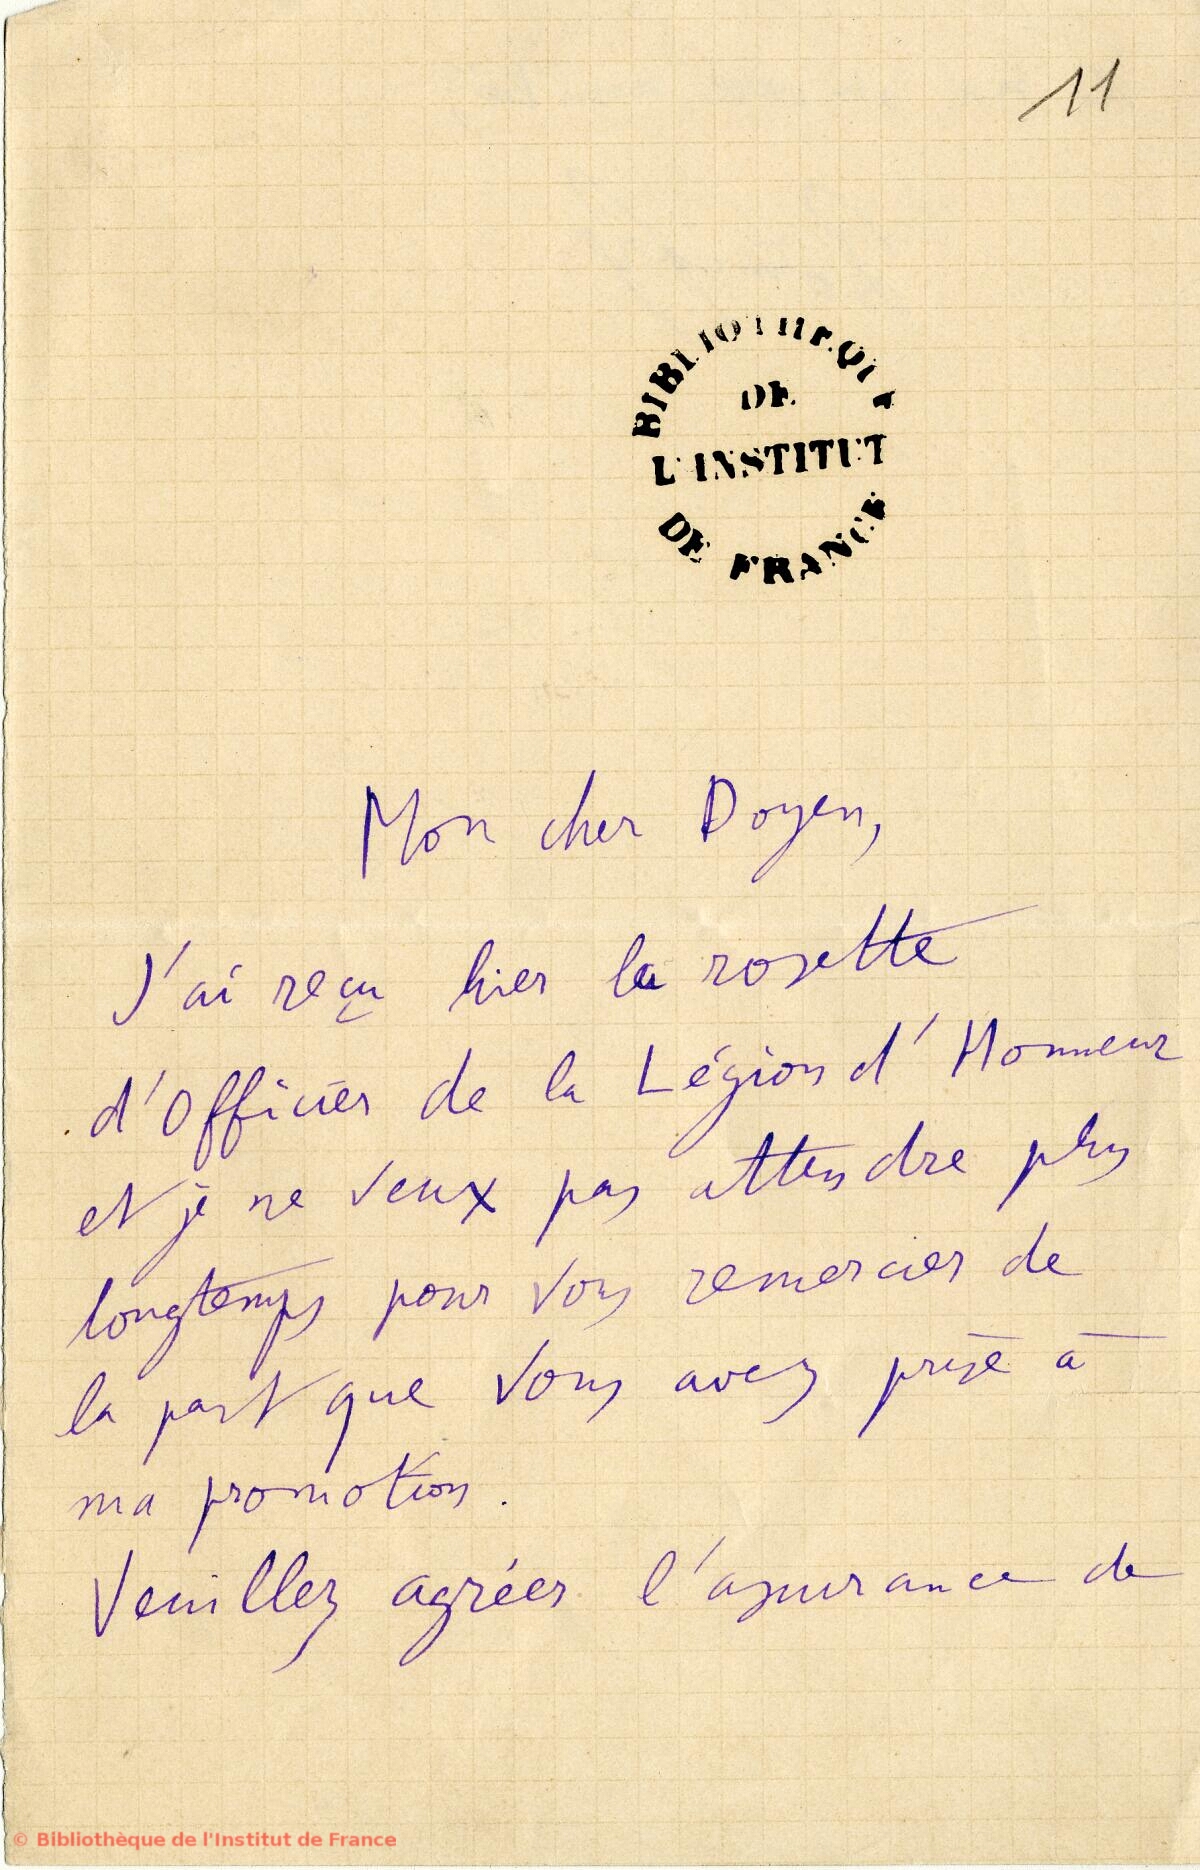 11
BIBLIOTHEQUE
DE
L'INSTITUT
DE FRANCE
Mon cher Doyen,
J'ai reçu hier la rosette
d'Officier de la Légion d'Honneur
et je ne veux pas attendre plus
longtemps pour vous remercier de
la part que vous avez prise à
ma promotion.
Veuillez agréer l'assurance de
© Bibliothèque de l'Institut de France